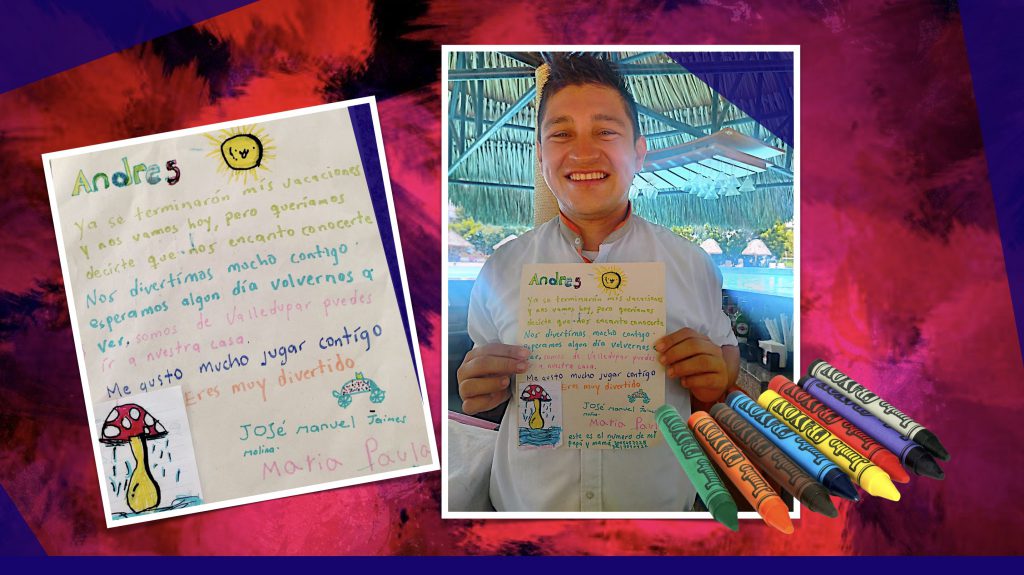 Andres
Ya se terminarón mis vacaciones
y nos vamos hoy, pero queríamos
decirte que. Nos encanto conocerte
Nos divertimas mucho contigo.
esperamos algon día volvernos a
ver, somos de Valledupar puedes
ir a nuestra casa.
Me gusto mucho jugar contigo
Eres muy divertido
JOSé manuel Jaimes
molina.
Maria Paula
Andres
Ya se terminarón mis vacaciones
y nos vamos hoy, pero queríamos
decirte que. Nos encanto conocerte
Nos divertimas mucho contigo.
esperamos algon día volvernos a
ver, somos de Valledupar puedes
ir a nuestra casa.
Me gusto mucho jugar contigo
Eres muy divertido
JOSé manuel Jaimes
molina.
Maria Paul
este es el numero de mi
papá y mamá